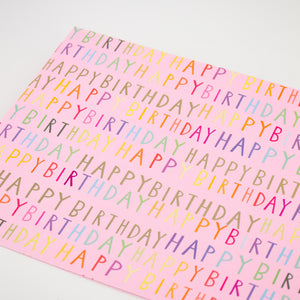 Y BIRTHDAY HAPPY BIRTHDAY
HAPPY BIRTHDAY HAPPY
HAPPY BIRTHDAY HAPPY BIRTH
BIRTHDAY HAPPY BIRTHDAY
HAPPY BIRTHDAY HAPPY B
HAPPY BIRTHDAY HAPPY BIRTH
HAPPY BIRTHDAY HAPPY BIRTHDAY
PPY BIRTHDAY HAPPY B RTHDAY
THDAY HAPPY BIRTHDAY